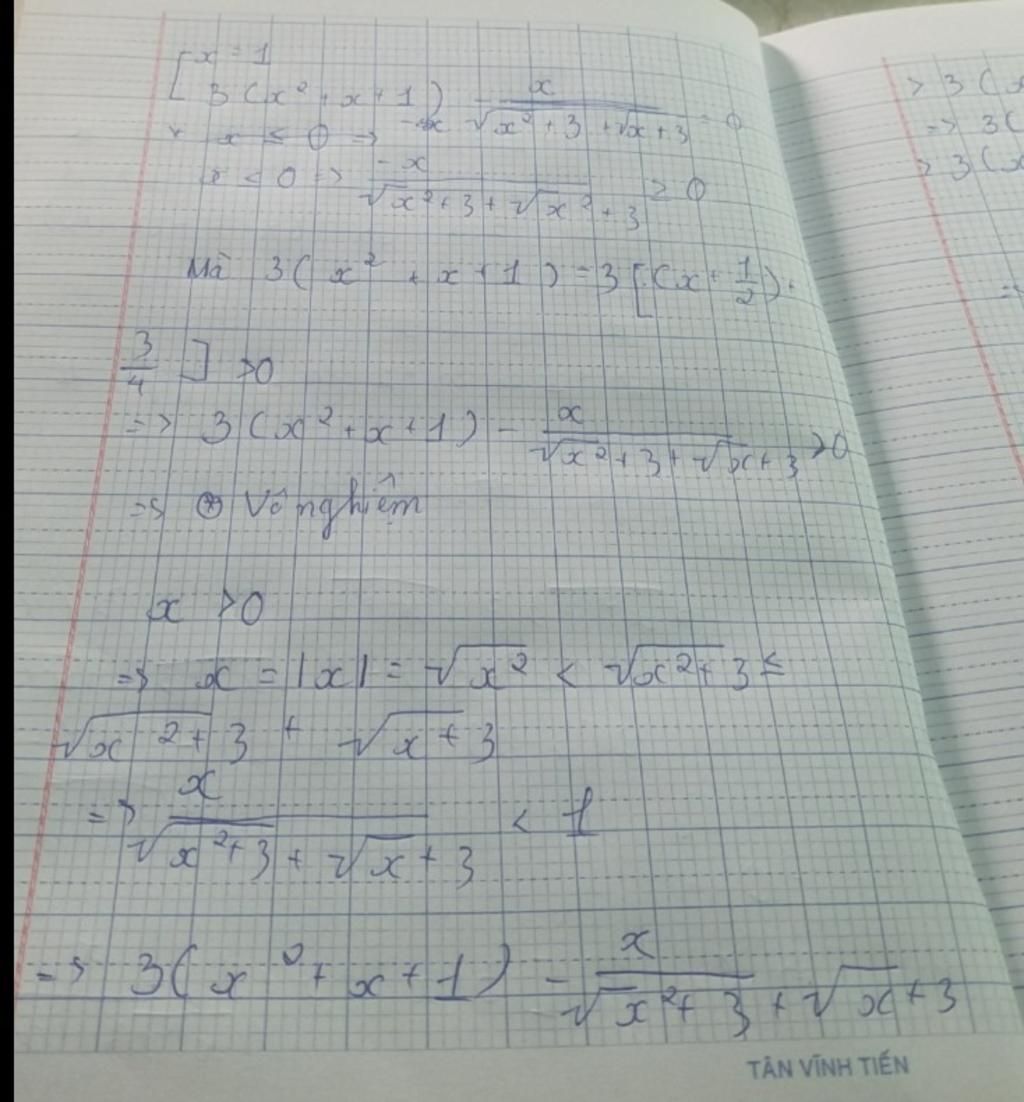 [ x = 1
3(x² + x + 1) - x / (√x²+3 + √x+3) = 0
x ≤ 0 =>
x < 0 => -x / (√x²+3 + √x²+3) ≥ 0
Mà 3(x² + x + 1) = 3[(x + 1/2).
3/4 ] >0
=> 3(x² + x + 1) - x / (√x²+3 + √x+3) >0
=> ⊛ Vô nghiệm
x >0
=> x = |x| = √x² < √x²+3 ≤
√x²+3 + √x+3
=> x / (√x²+3 + √x+3) < 1
=> 3(x² + x + 1) - x / (√x²+3 + √x+3)
TÂN VĨNH TIẾN
> 3(x
=> 3(
> 3(x
=>